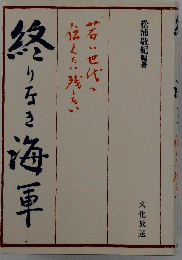 松浦敬紀編著
若い世代へ
伝えたい残したい
終りなき海軍
文化放送